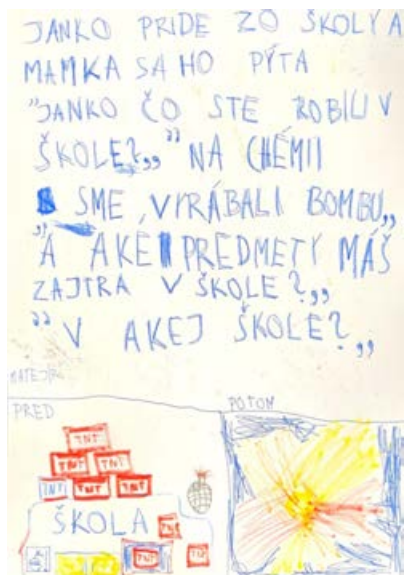 JANKO PRIDE ZO ŠKOLY A
MAMKA SA HO PÝTA
"JANKO ČO STE ROBILI V
ŠKOLE?,, "NA CHÉMII
SME VYRÁBALI BOMBU,,
"A AKÉ PREDMETY MÁŠ
ZAJTRA V ŠKOLE?,,
"V AKEJ ŠKOLE?,,
PRED
POTOM
TNT
TNT TNT
TNT TNT TNT
ŠKOLA TNT
TNT